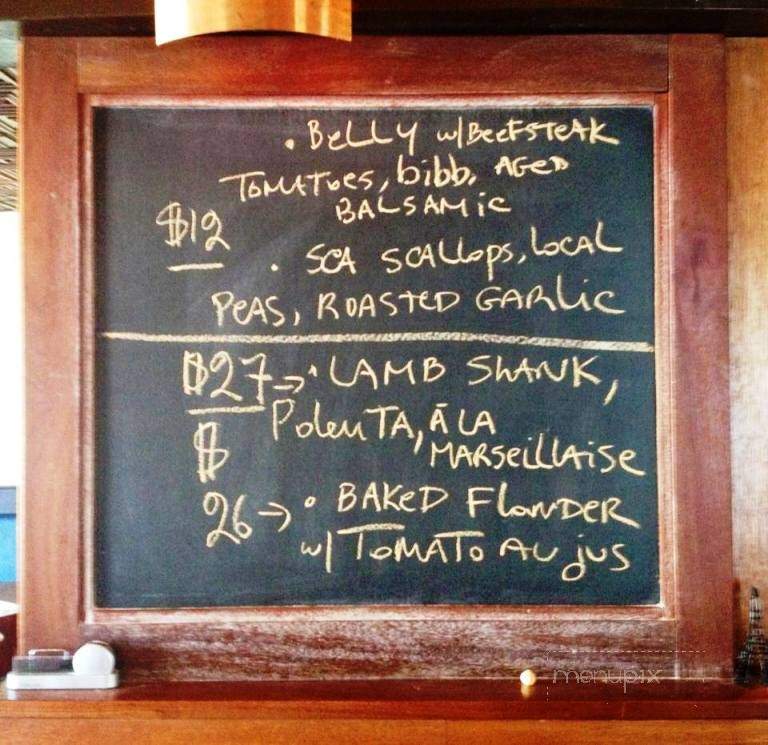 • BELLY w/BEEFSTEAK
TOMATOES, bibb, AGED
BALSAMIC
$12
• SEA SCALLOPS, LOCAL
PEAS, ROASTED GARLIC
$27 → • LAMB SHANK,
Polenta, À LA
MARSEILLAISE
$
26 → • BAKED FLOUNDER
w/ TOMATO AU jus
menupix